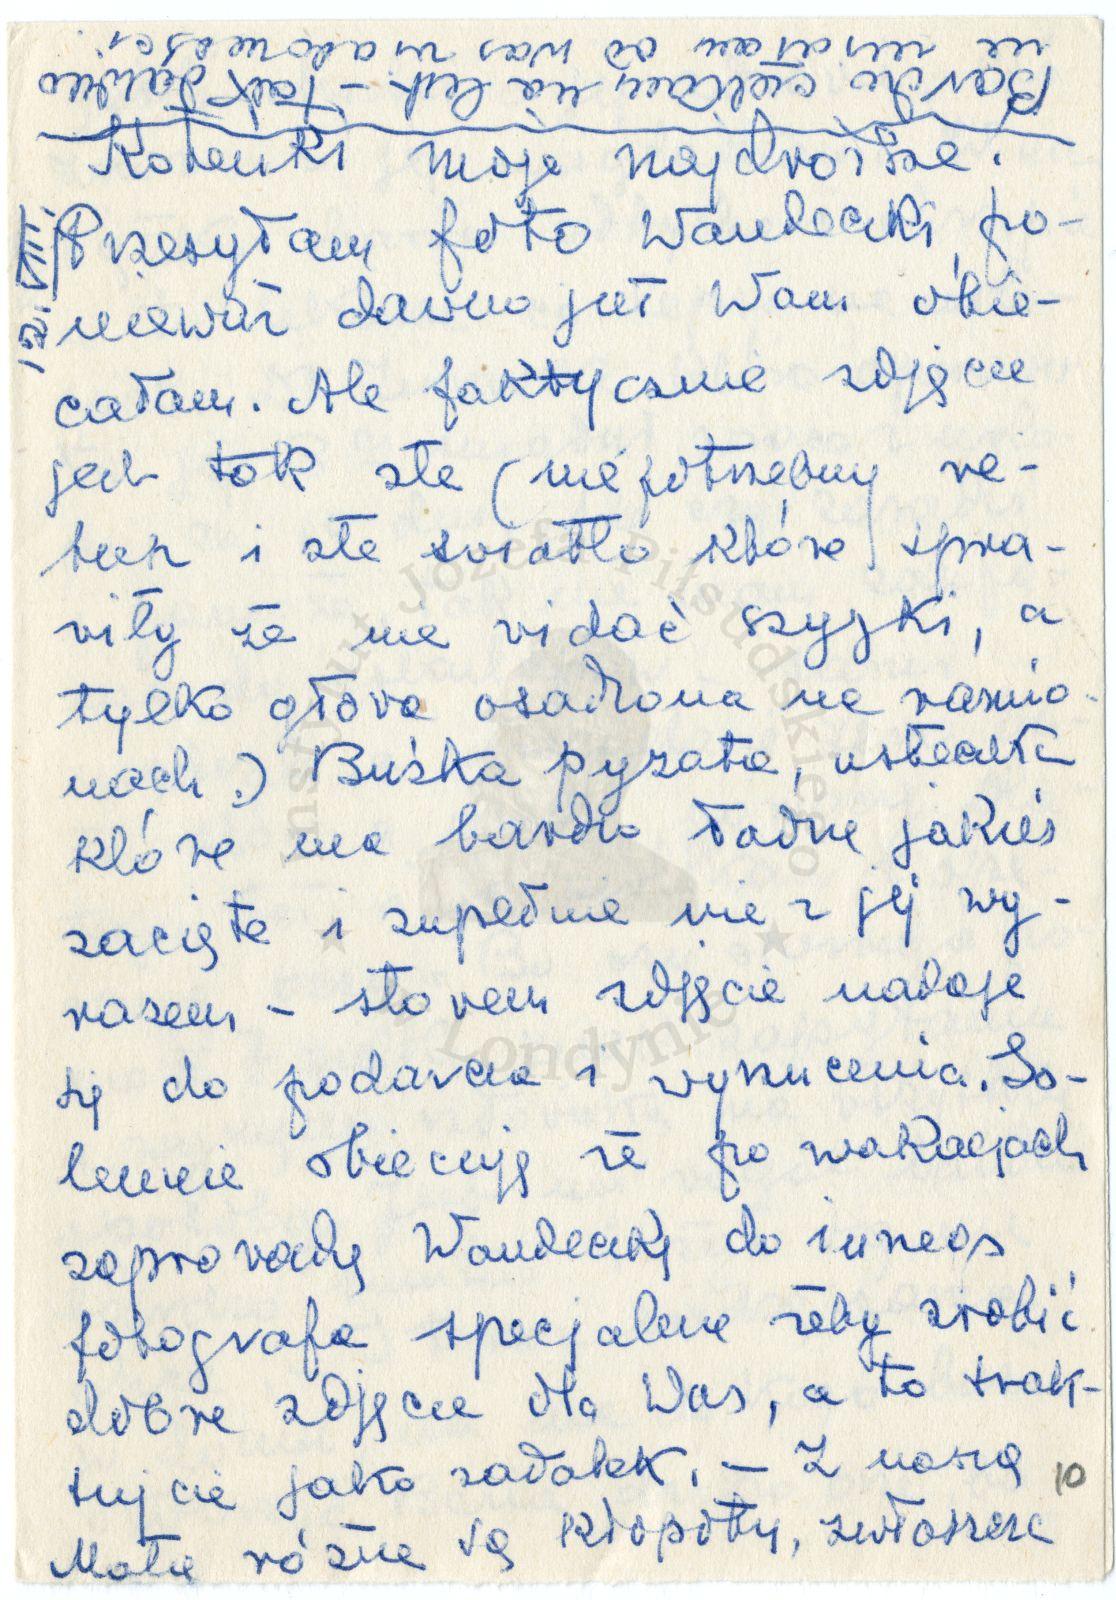 Bardzo czekam na list – tak dawno
nie miałam od was wiadomości.
Kotenki moje najdroższe!
12. VIII
Przesyłam foto Wandeczki, po-
nieważ dawno już Wam obie-
całam. Ale faktycznie zdjęcie
jest tak złe (niepotrzebny re-
tusz i złe swiatło które spra-
viły że nie vidać szyjki, a
tylko głova osadzona na ramio-
nach.) Buźka pyzata, usteczka
które ma bardzo ładne jakieś
zacięte i zupełnie nie z jej wy-
razem – słovem zdjęcie nadaje
się do podarcia i vyrzucenia. So-
lennie obiecuję że po wakacjach
zaprovadzę Wandeczkę do innego
fotografa specjalnie żeby zrobić
dobre zdjęcie dla Was, a to trak-
tujcie jako zadatek. – Z naszą
Małą różne są kłopoty, zwłaszcza
10
Instytut Józefa Piłsudskiego
w Londynie